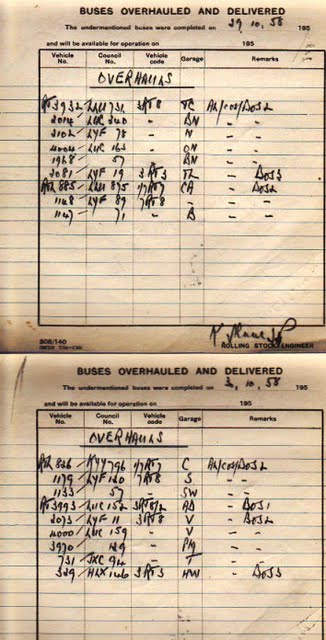 BUSES OVERHAULED AND DELIVERED
The undermentioned buses were completed on 29.10.58 195
and will be available for operation on 195
Vehicle No. Council No. Vehicle code Garage Remarks
OVERHAULS
LUC 340 - BN - -
2102 LYF 78 - N - -
LUC 163 - ON - -
1968 57 - BN - -
2081 LYF 19 3RT3 TL - BOS3
885 LYU 875 CA - BOS2
1148 LYF 89 7RT8 - - -
1147 71 - B - -
808/140
ROLLING STOCK ENGINEER
BUSES OVERHAULED AND DELIVERED
The undermentioned buses were completed on 3.10.58 195
and will be available for operation on 195
Vehicle No. Council No. Vehicle code Garage Remarks
OVERHAULS
826 KYY 796 C
1179 LYF 120 7RT8 S - -
1133 57 - SW - -
3993 LUC 152 3RT8/2 AD - BOS1
2073 LYF 11 3RT8 V - BOS2
4000 LUC 159 - V - -
3970 129 - - -
731 JXC 94 - T - -
329 HLX 146 3RT3 HW - BOS3